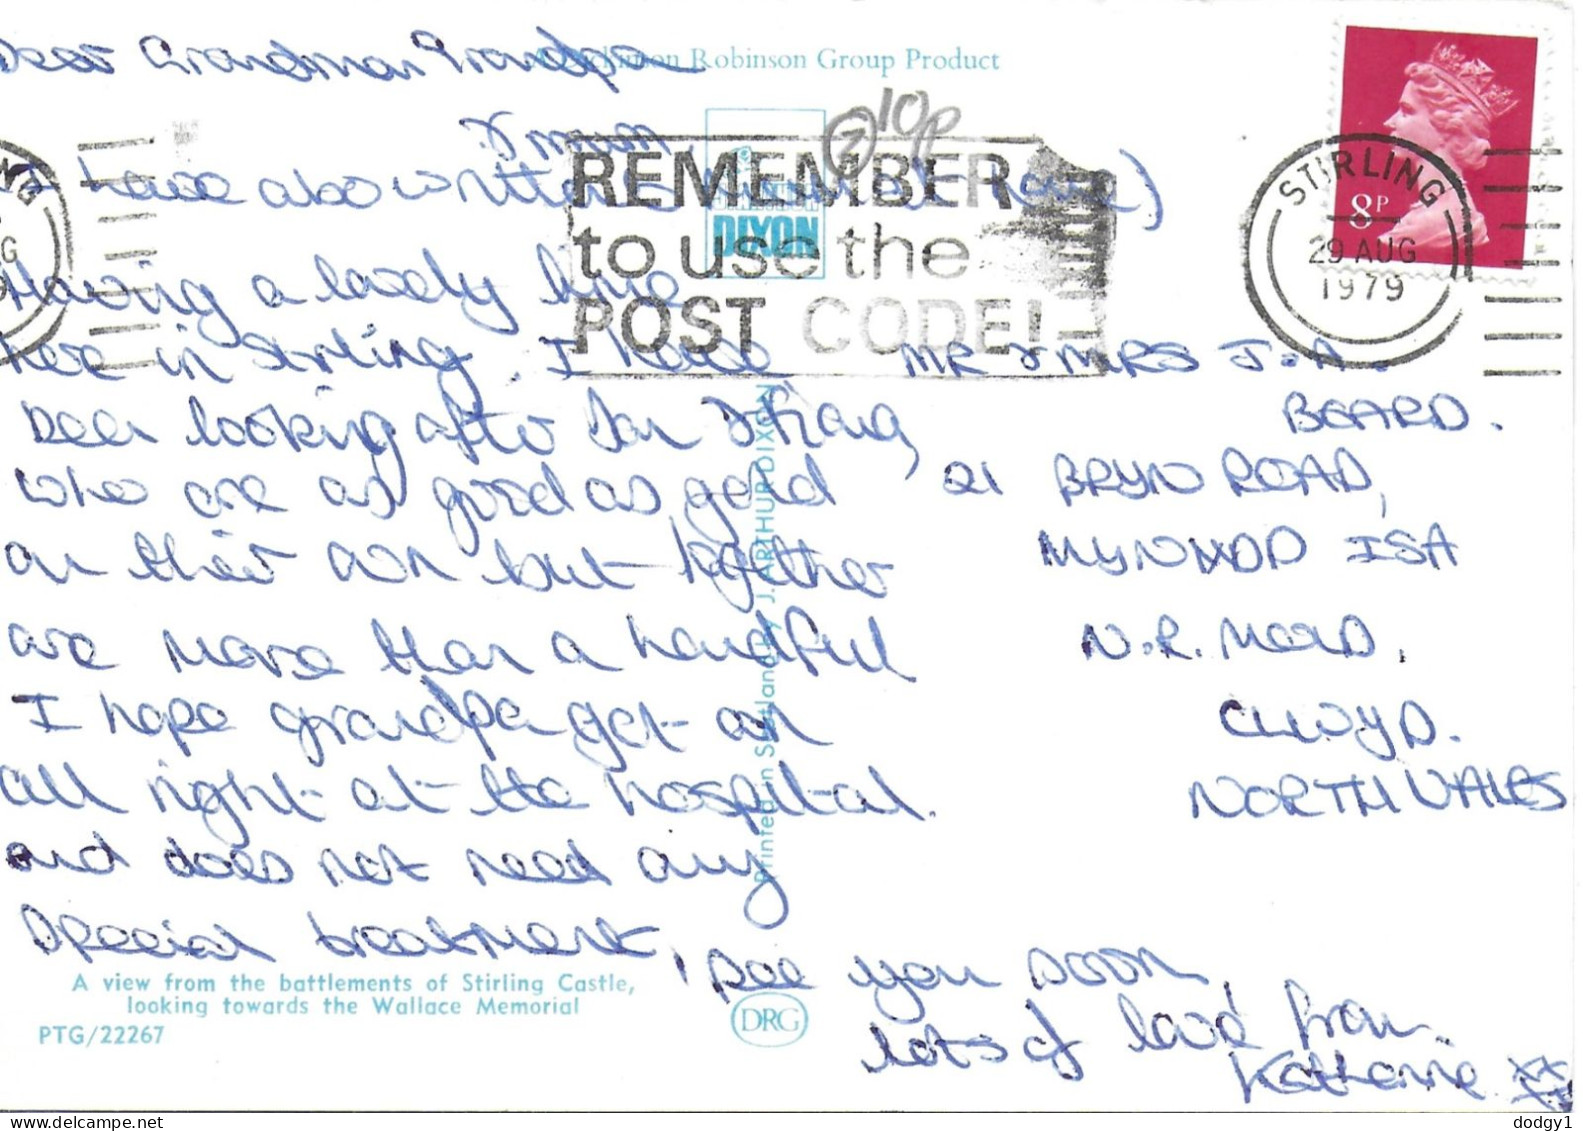 Dear Grandma Grandpa
A Dickinson Robinson Group Product
10p
& mum
I have also written to
at home)
REMEMBER
to use the
POST CODE!
DIXON
STIRLING
29 AUG
1979
8P
Having a lovely time
here in stirling. I have
been looking after Ian & Fiona,
who are as good as gold
on their own but together
are more than a handful
I hope grandpa get on
all right at the hospital.
and does not need any
special treatment,
see you soon,
lots of love from
Katherine xx
MR & MRS J.A.
BEARD.
21 BRYN ROAD,
MYNYDD ISA
N.R. MOLD,
CLWYD.
NORTH WALES
Printed in Scotland by J. ARTHUR DIXON
A view from the battlements of Stirling Castle,
looking towards the Wallace Memorial
PTG/22267
DRG
dodgy1